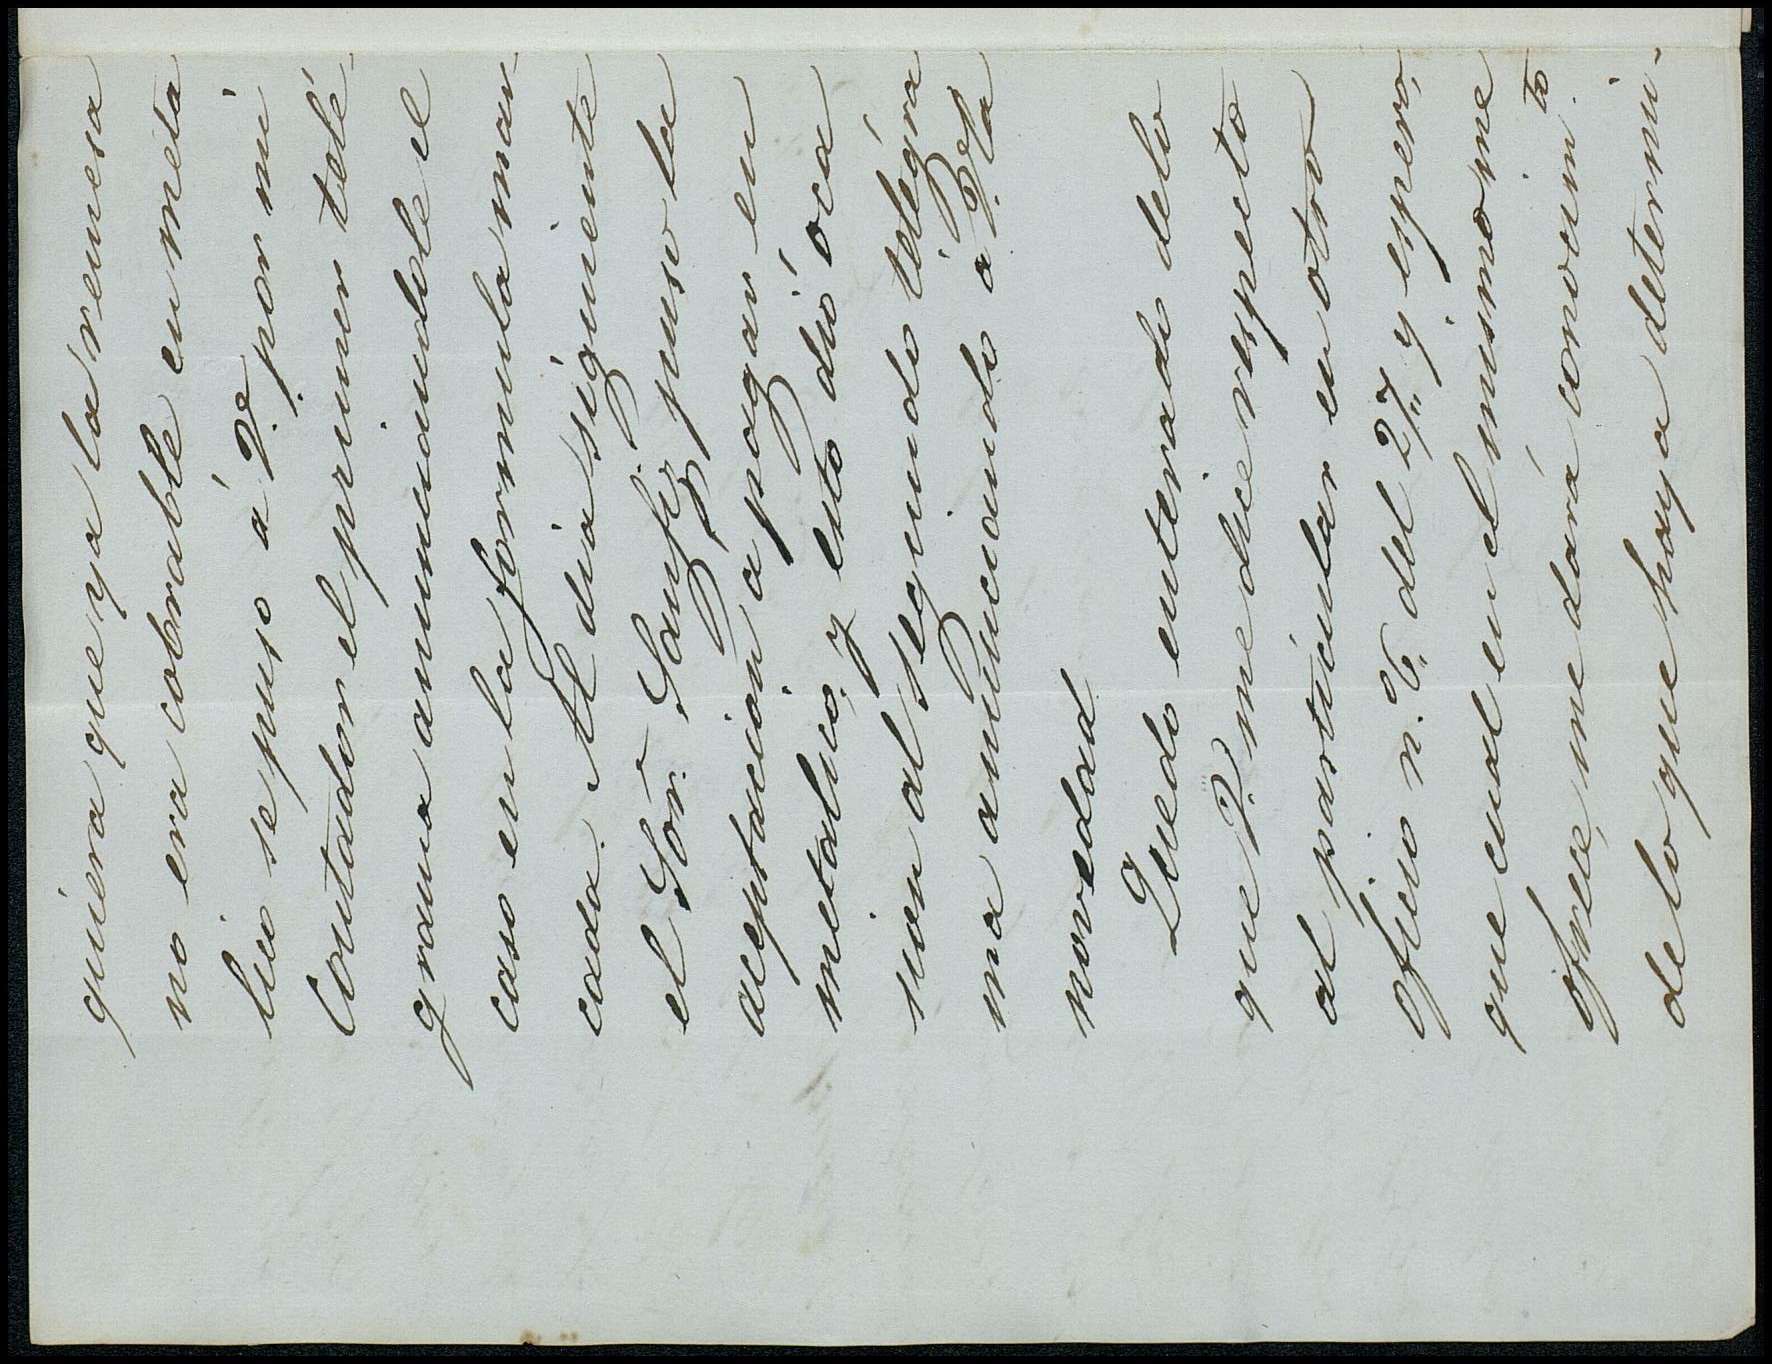 quiera que ya la remesa
no era cobrable en metá
lico se puso á V.e por mi
Contador el primer telé-
grama anunciandole el
caso en la formula mar-
cada. Al dia siguiente
el Sor. Sanfiz puso la
aceptacion a pagar en
metalico, y esto dió oca
sion al segundo telégra
ma anunciando a V. la
novedad.
Quedo enterado de lo
que V. me dice respecto
al particular en otro
oficio n.º 6, del 27,, y espero,
que cual en el mismo me
ofrece, me dará conocim.to
de lo que haya determi-